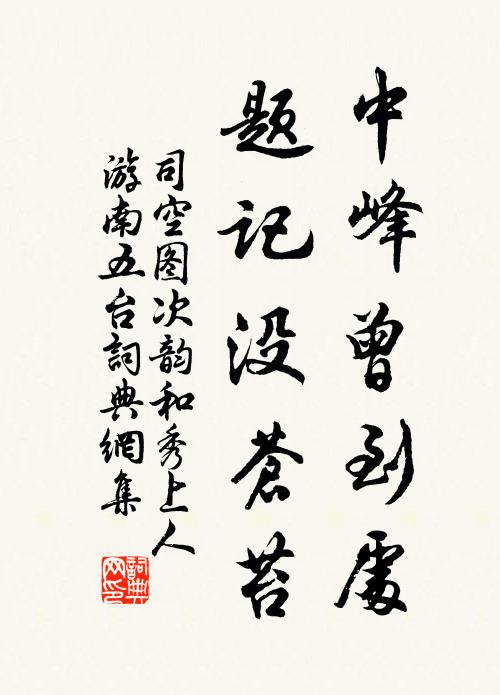 中峰曾到處
題记没蒼苔
司空图次韵和秀上人
游南五台詞典網集
詞典网印